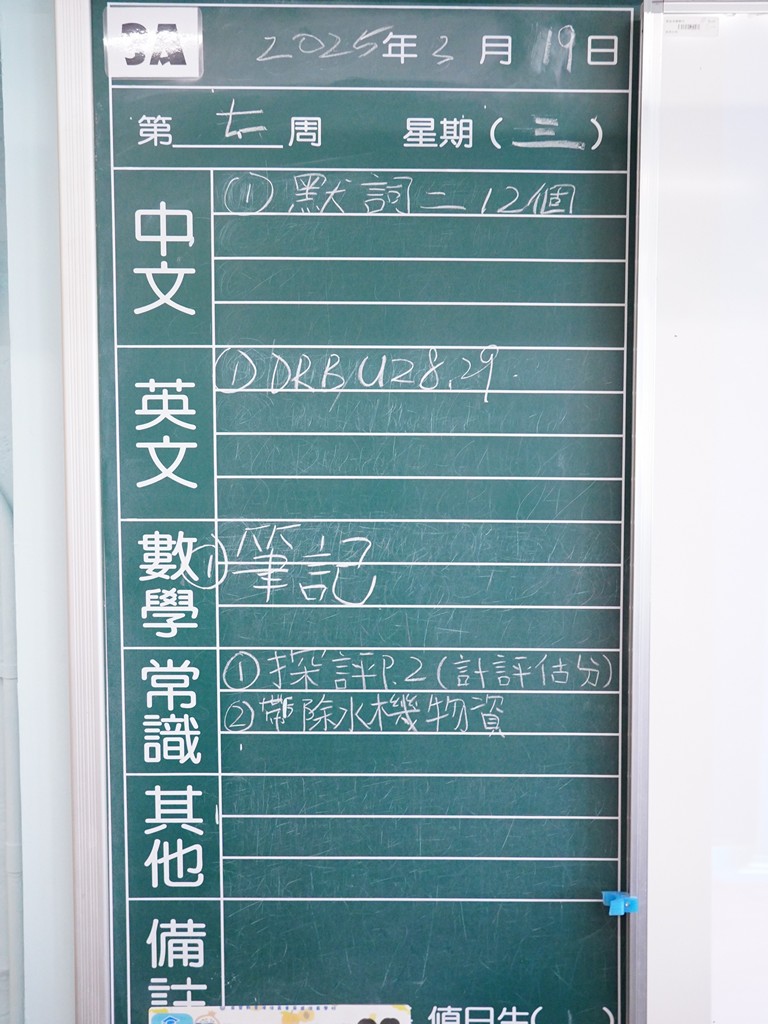 3A 2025年3月19日
第七周 星期(三)
中文
① 默詞二12個
英文
① DRB, U28, 29.
數學
① 筆記
常識
① 探評P.2(計評估分)
② 帶除水機物資
其他
備註
值日生( )